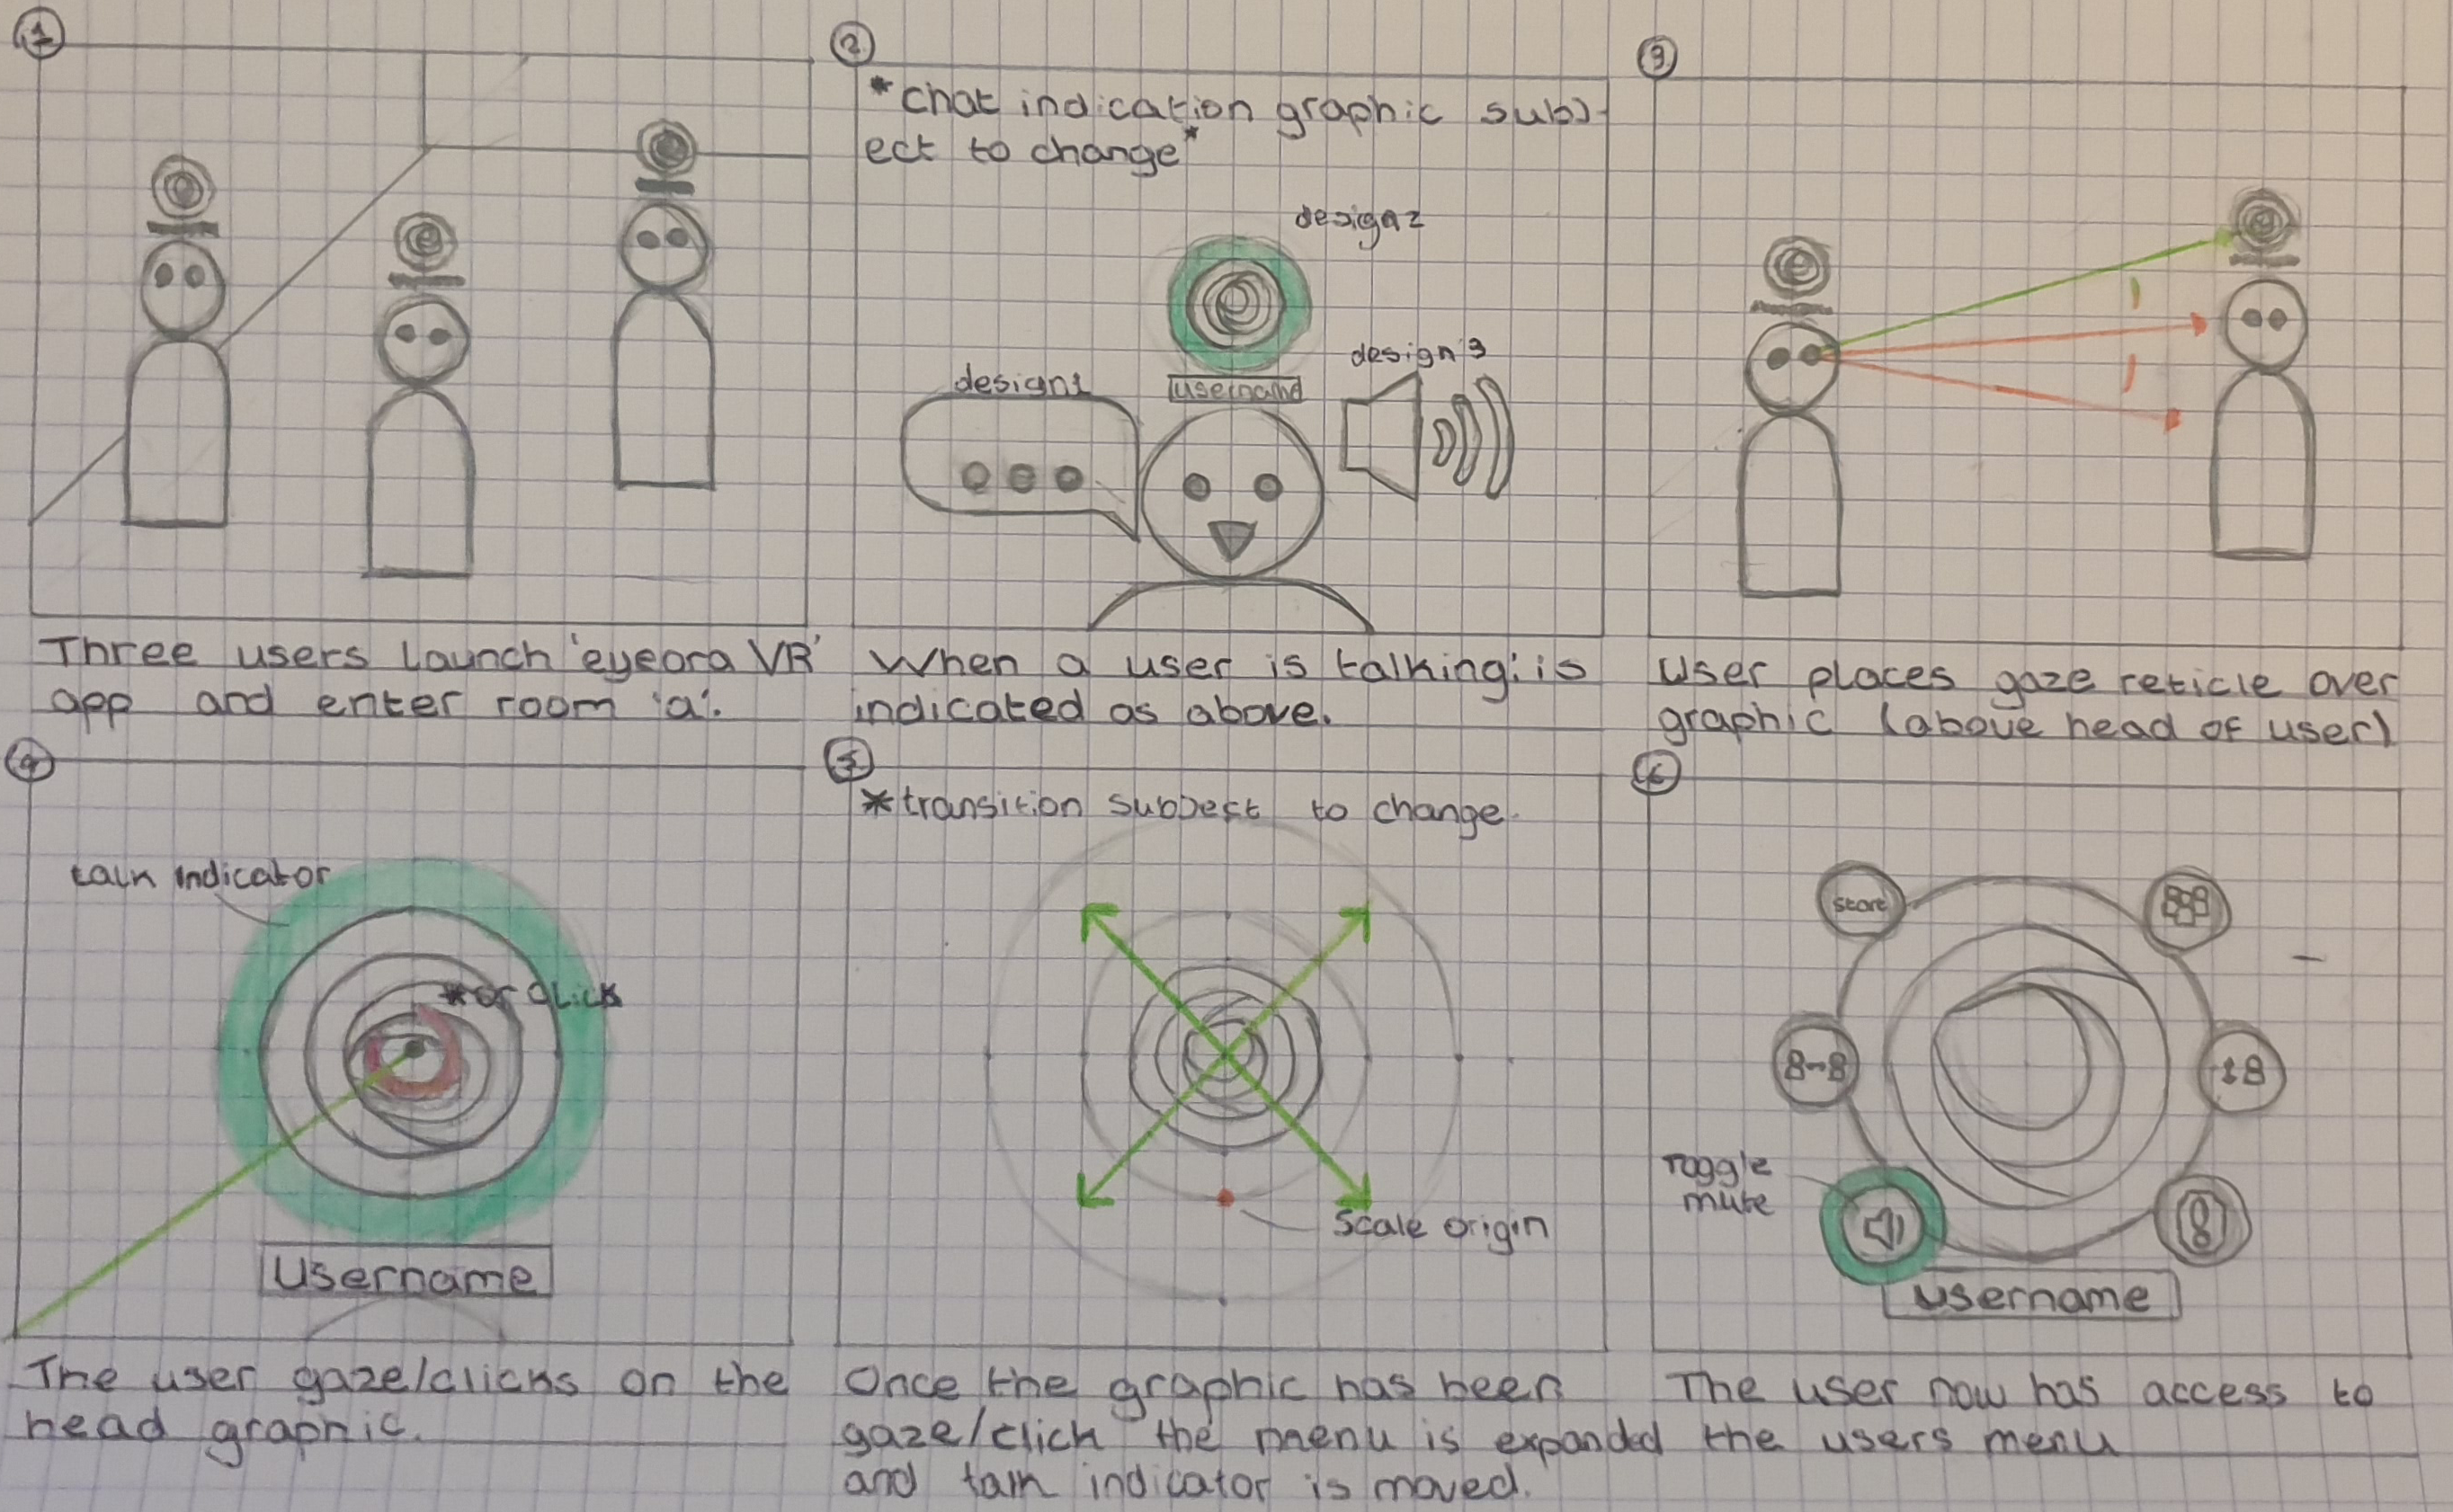 1
Three users launch 'eyeora VR'
app and enter room 'a'.
2
*chat indication graphic subj-
ect to change*
design2
design1
username
design 3
When a user is talking: is
indicated as above.
3
User places gaze reticle over
graphic (above head of user)
4
talk indicator
*or click
Username
The user gaze/clicks on the
head graphic.
5
*transition subject to change.
Scale origin
Once the graphic has been
gaze/click the menu is expanded
and talk indicator is moved.
6
Start
Toggle
mute
username
The user now has access to
the users menu